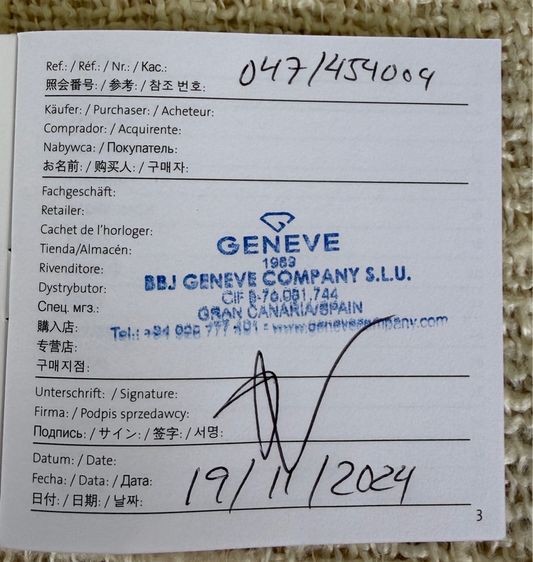 Ref.: / Réf.: / Nr.: / Кас.: 047/454009
照会番号: / 参考: / 참조 번호:
Käufer: / Purchaser: / Acheteur:
Comprador: / Acquirente:
Nabywca: / Покупатель:
お名前: / 购买人: / 구매자:
Fachgeschäft:
Retailer:
Cachet de l'horloger:
Tienda/Almacén:
Rivenditore:
Dystrybutor:
Спец. мгз.:
購入店:
专营店:
구매지점:
GENEVE
1983
BBJ GENEVE COMPANY S.L.U.
CIF B-76.081.744
GRAN CANARIA/SPAIN
Tel.: +34 928 777 - www.genevecompany.com
Unterschrift: / Signature:
Firma: / Podpis sprzedawcy:
Подпись: / サイン: / 签字: / 서명:
Datum: / Date:
Fecha: / Data: / Дата: 19/11/2024
日付: / 日期: / 날짜:
3